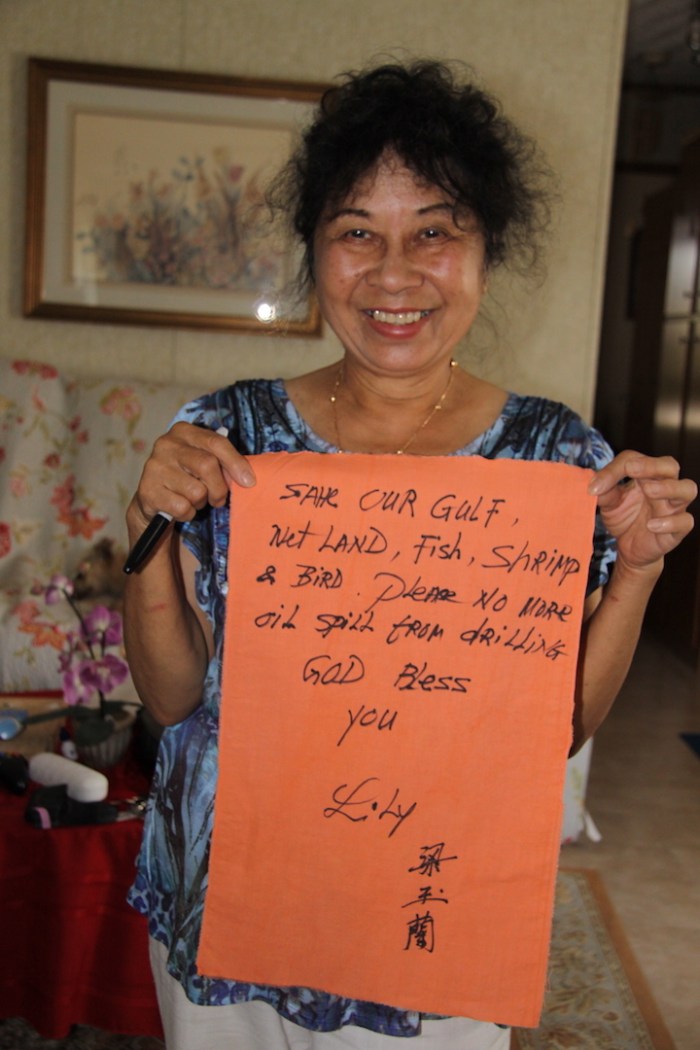 SAVE OUR GULF,
Wet LAND, Fish, SHRIMP
& BIRD. Please NO MORE
OIL SPILL FROM DRILLING
GOD Bless
you
Lily
梁
玉
蘭